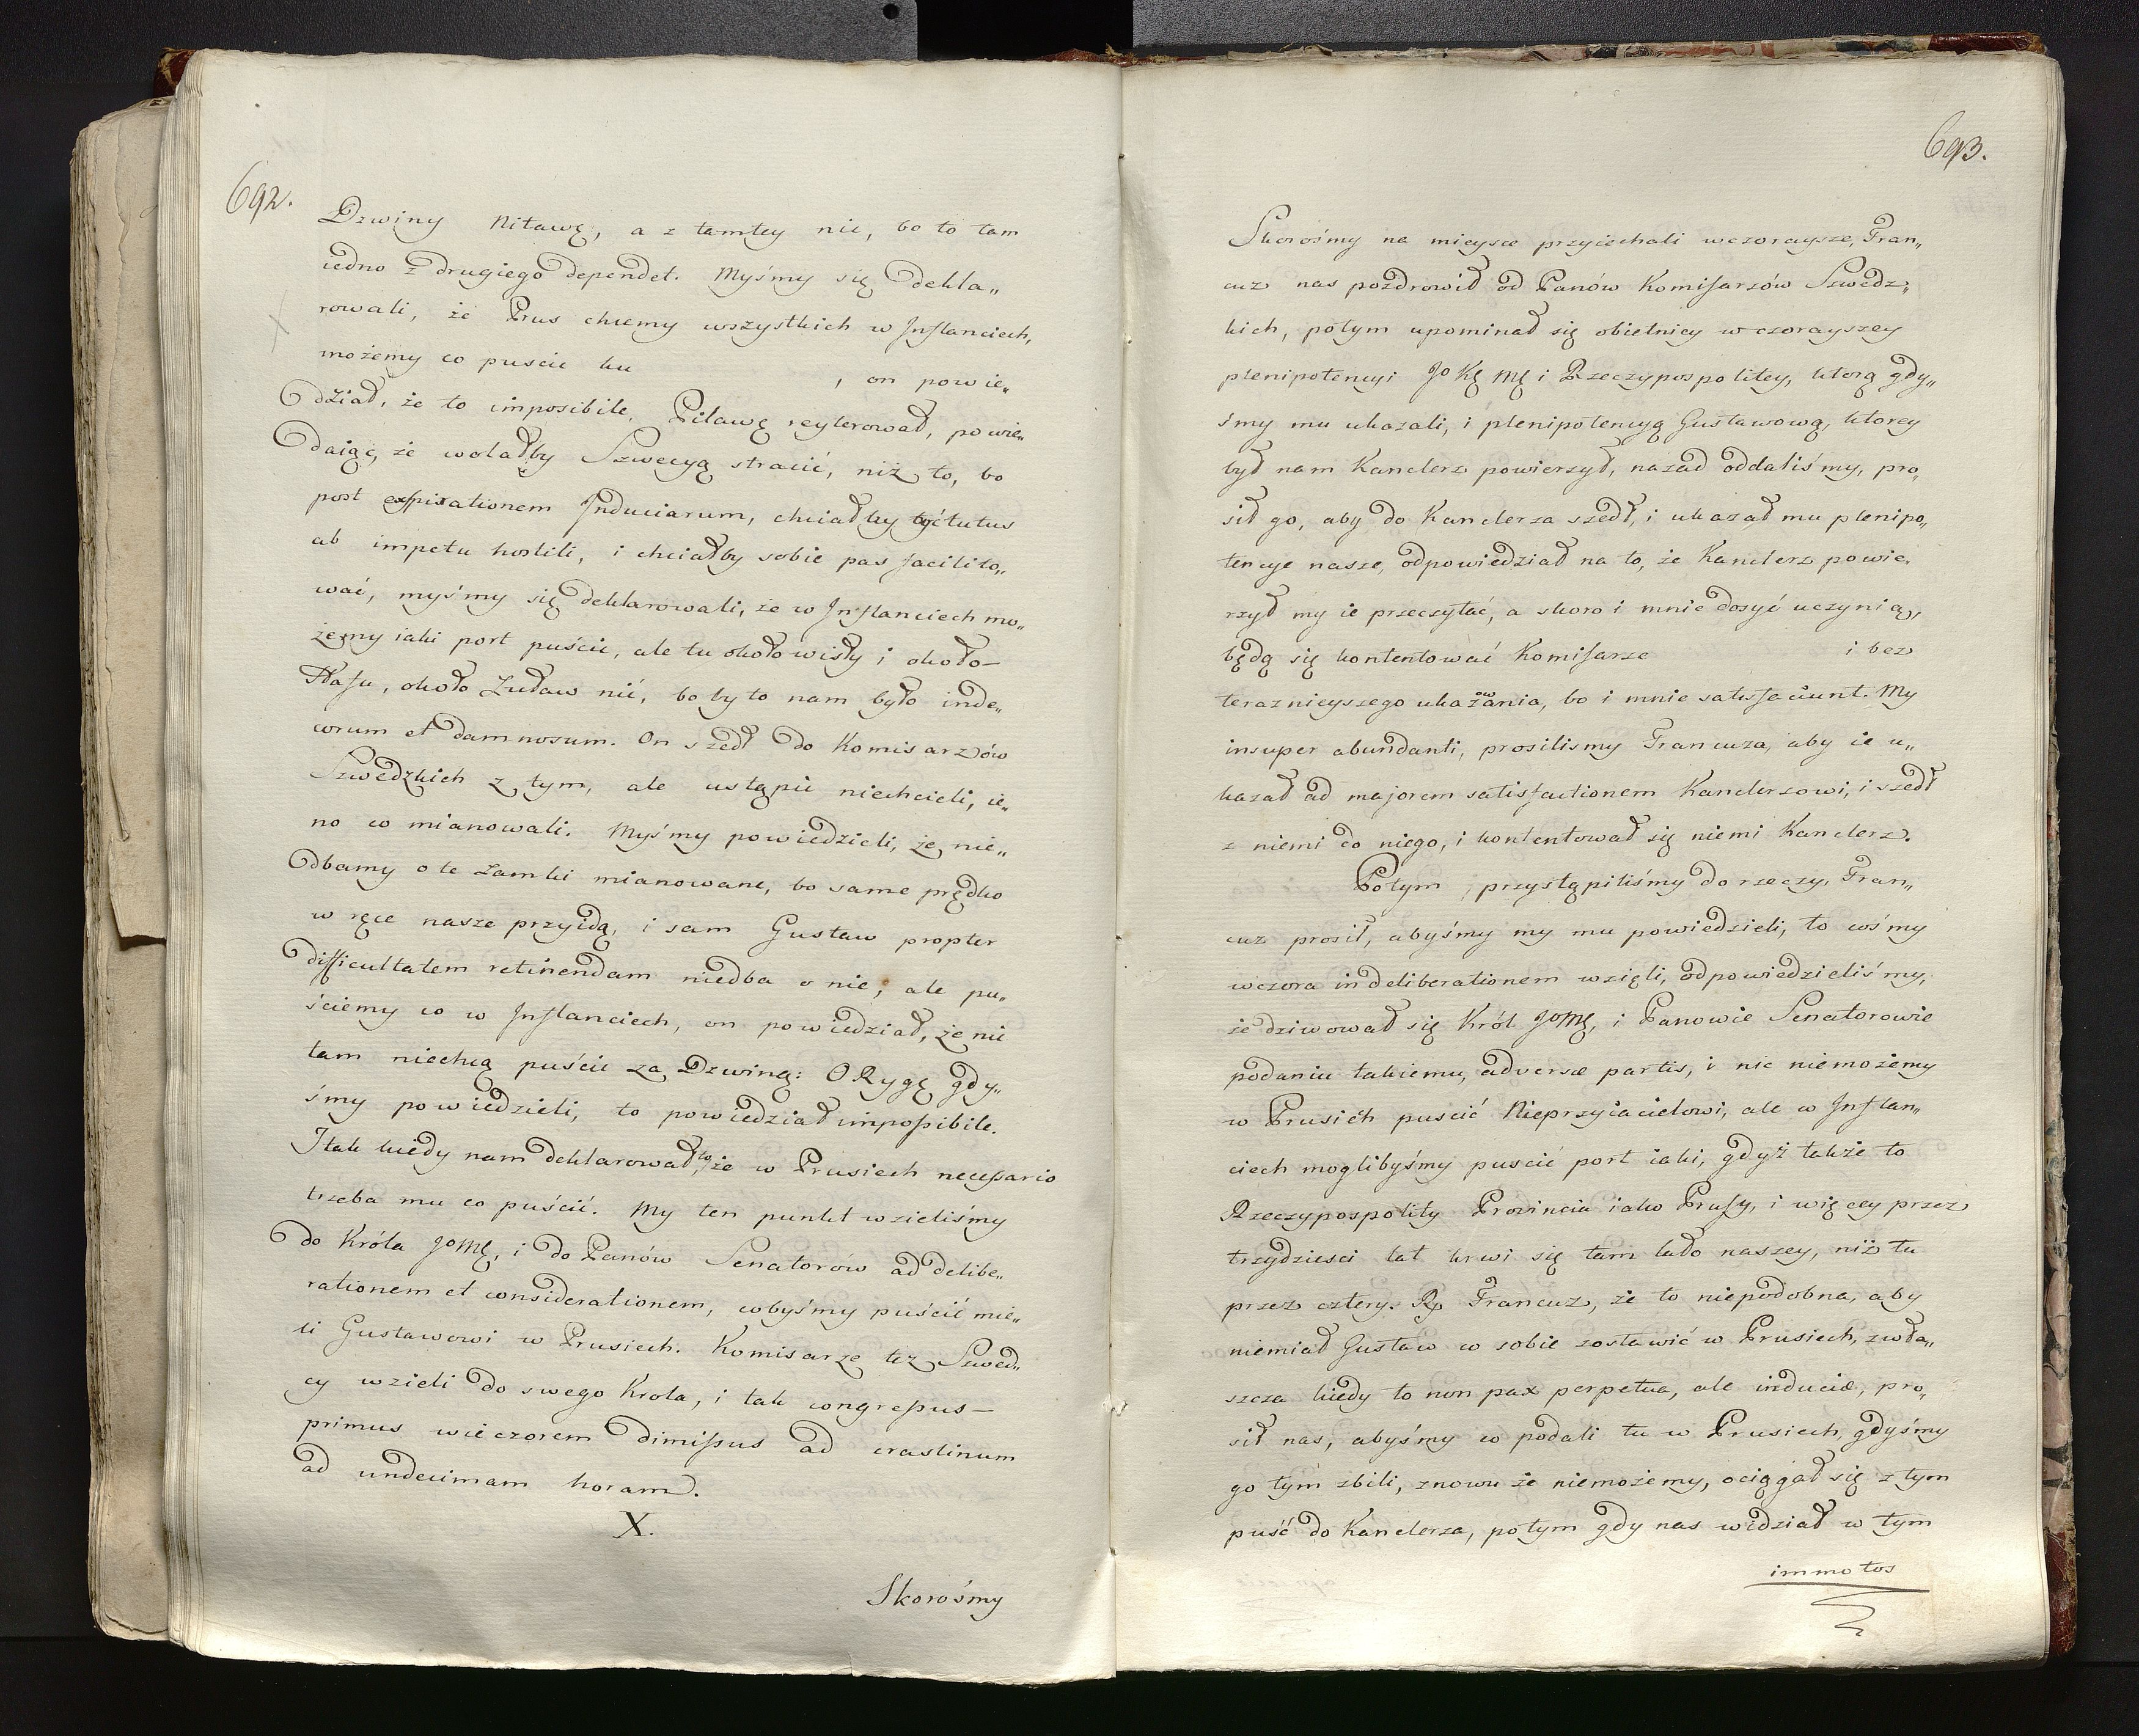 692.
Dzwiny Nitawę, a z tamtey nic, bo to tam
iedno z drugiego dependet. Myśmy się dekla„
rowali, że Prus chcemy wszystkich w Inflanciech,
możemy co puscic ku , on powie„
dział, że to imposibile, Piławę reyterował, powie„
daiąc, że wolałby Szwecyą stracić, niż to, bo
post expirationem Induciarum, chciałby być tutus
ab impetu hostili, i chciałby sobie pas facilito„
wać, myśmy się deklarowali, że w Inflanciech mo„
żemy iaki port puścic, ale tu około wisły i około
Hafu, około Zuław nić, bo by to nam było inde„
corum et damnosum. On szedł do Komisarzów
Szwedzkich z tym, ale ustąpic niechcieli, ie„
no co mianowali. Myśmy powiedzieli, że nie„
dbamy o te Zamki mianowane, bo same prędko
w ręce nasze przyidą, i sam Gustaw propter
difficultatem retinendam niedba o nie, ale pu„
ściemy co w Inflanciech, on powiedział, że nic
tam niechcą puścic za Dzwiną: O Rygę gdy„
śmy powiedzieli, to powiedział impossibile.
I tak kiedy nam deklarował, to że w Prusiech necessario
trzeba mu co puścić. My ten punkt wzieliśmy
do Króla JoMę, i do Panów Senatorów ad delibe„
rationem et considerationem, cobyśmy puścić mie„
li Gustawowi w Prusiech. Komisarze tez Szwed„
cy wzieli do swego Krola, i tak congressus
primus wieczorem dimissus ad crastinum
ad undecimam horam.
X.
Skorośmy
693.
Skorośmy na mieysce przyiechali wczoraysze, Fran„
cuz nas pozdrowił od Panów Komisarzów Szwedz„
kich, potym upominał się obietnicy wczorayszey
plenipotencyi Jo Kę Mę i Rzeczypospolitey, ktorą gdy„
śmy mu ukazali, i plenipotencyą Gustawową, ktorey
był nam Kanclerz powierzył, nazad oddaliśmy, pro„
sił go, aby do Kanclerza szedł, i ukazał mu plenipo„
tencye nasze, odpowiedział na to, że Kanclerz powie„
rzył my ie przeczytać, a skoro i mnie dosyć uczynią,
będą się kontentować Komisarze i bez
teraznieyszego ukazowania, bo i mnie satisfaciunt. My
insuper abundanti, prosilismy Francuza, aby ie u„
kazał ad majorem satisfactionem Kanclerzowi, i szedł
z niemi do niego, i kontentował się niemi Kanclerz.
Potym przystąpiliśmy do rzeczy, Fran„
cuz prosił, abyśmy my mu powiedzieli, to cośmy
wczora in deliberationem wzięli, odpowiedzieliśmy,
że dziwował się Król JoMę, i Panowie Senatorowie
podaniu takiemu, adversæ partis, i nic niemożemy
w Prusich puscić Nieprzyiacielowi, ale w Inflan„
ciech moglibyśmy puscić port iaki, gdyż także to
Rzeczypospolity Provincia iako Prusy, i więcey przez
trzydziesci lat krwi się tam lało naszey, niż tu
przez cztery. Rp Francuz, że to niepodobna, aby
niemiał Gustaw co sobie zostawić w Prusiech, zwła„
szcza kiedy to non pax perpetua, ale induciæ, pro„
sił nas, abyśmy co podali tu w Prusiech, gdyśmy
go tym zbili, znowu że niemożemy, ociągał się z tym
puść do Kanclerza, potym gdy nas widział w tym
immotos